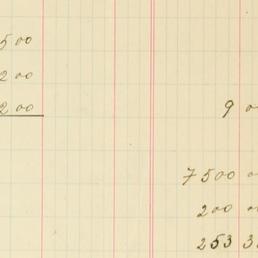 500
200
200
9
7500
200
253